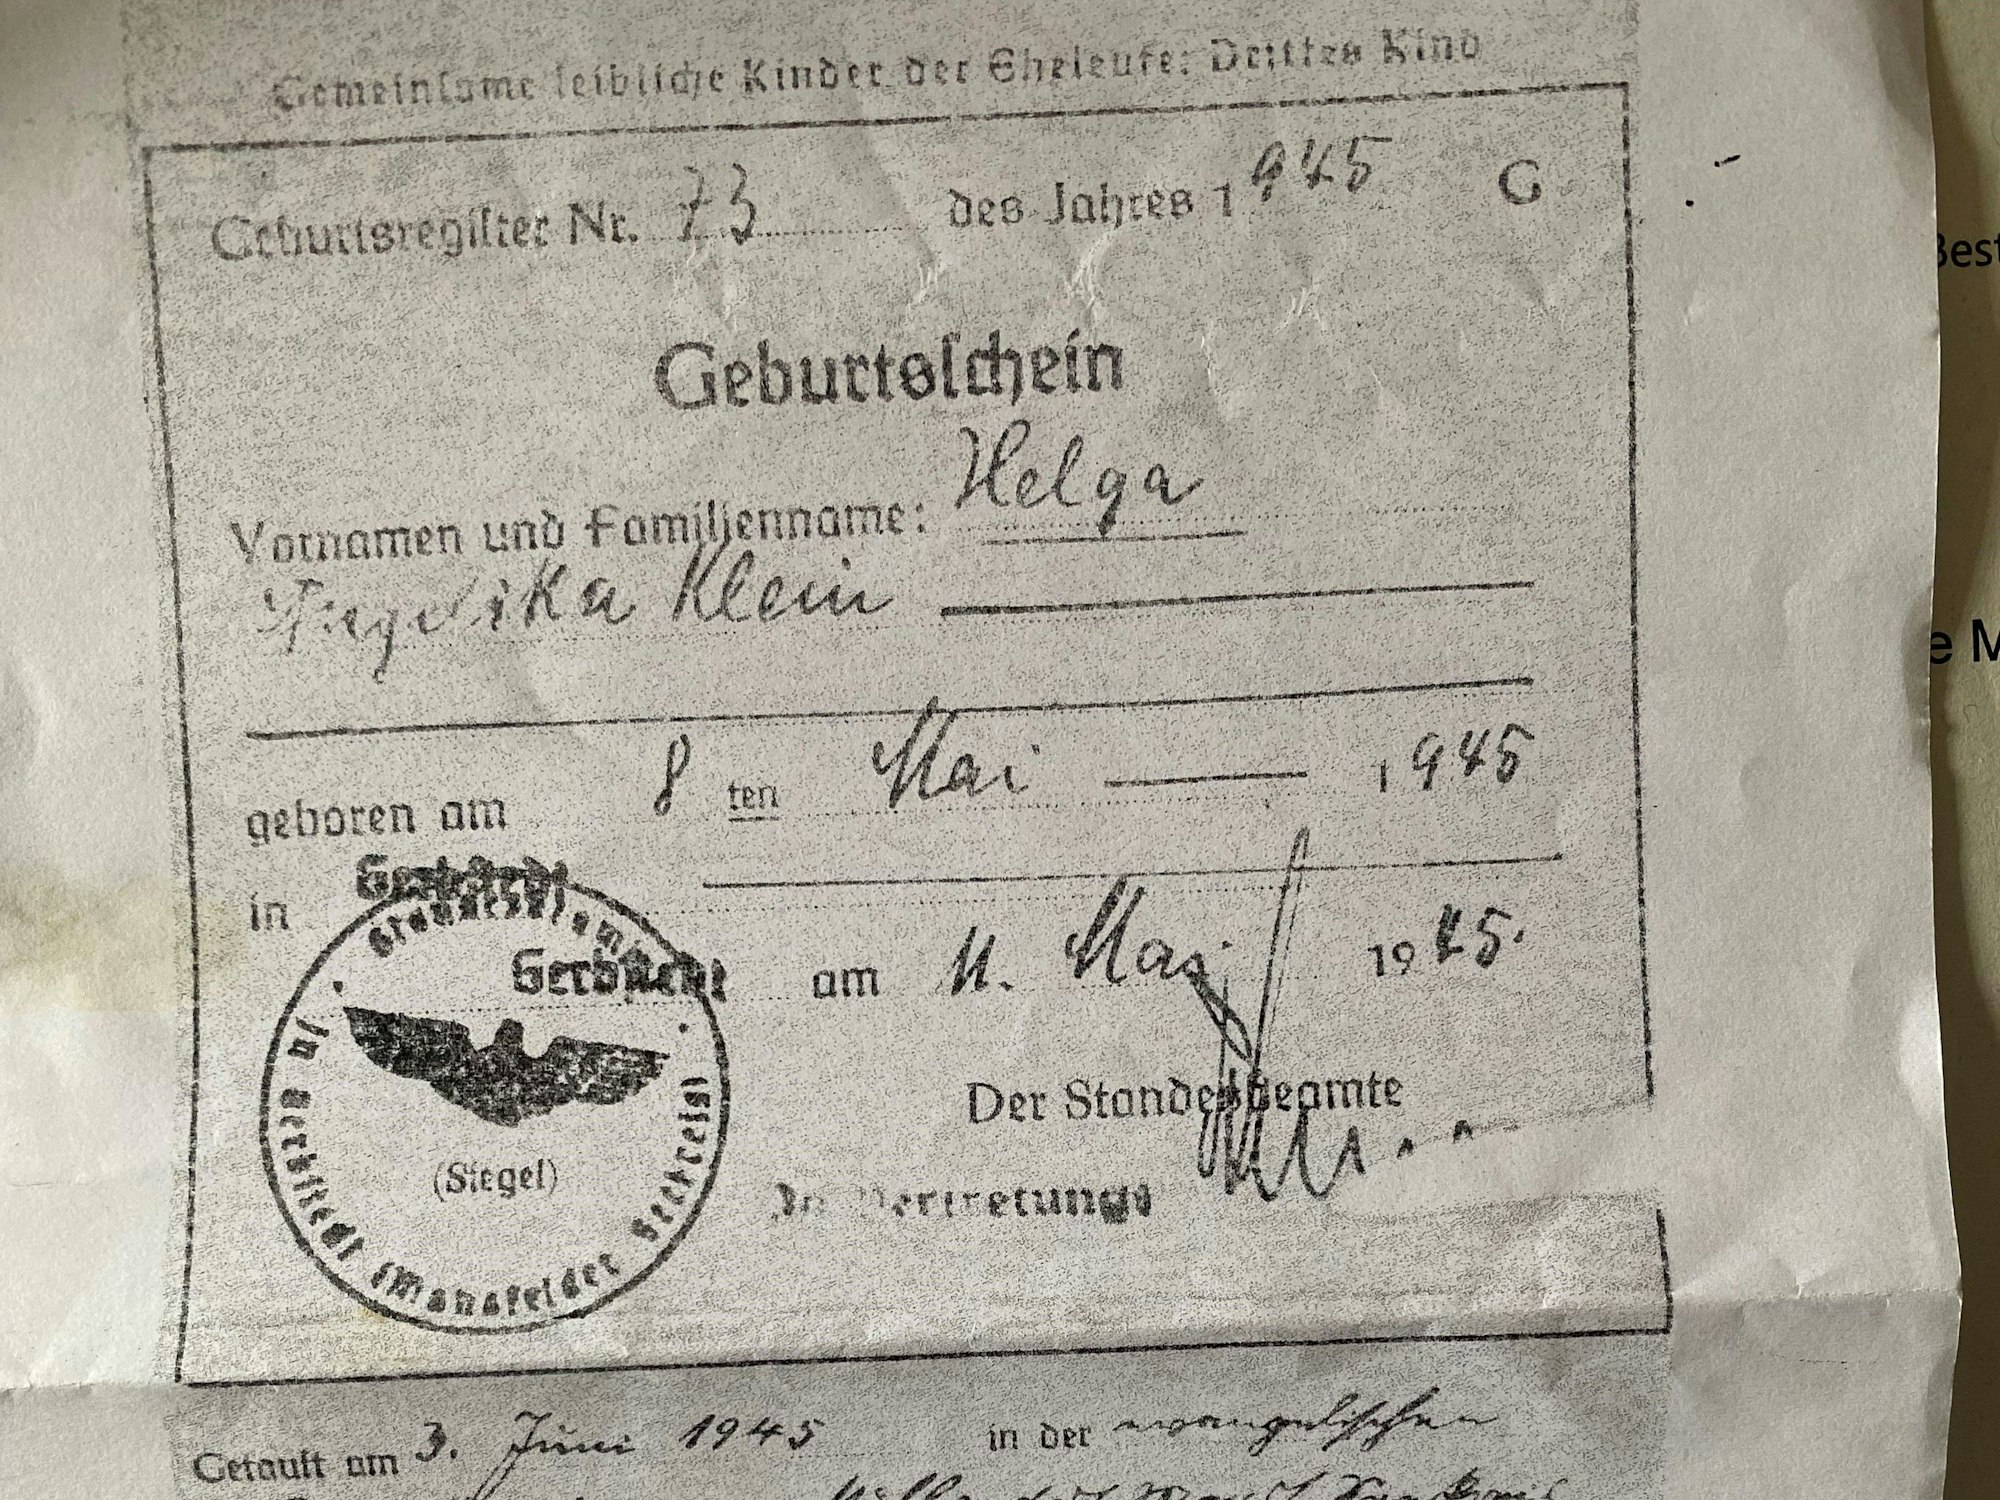 Gemeinsame leibliche Kinder der Eheleute: Drittes Kind
Geburtsregister Nr. 73 des Jahres 1945 G
Geburtsschein
Vornamen und Familienname: Helga
Angelika Klein
geboren am 8 ten Mai 1945
in Gerbstedt
Gerbstedt am 11. Mai 1945.
Der Standesbeamte
In Vertretung:
(Siegel)
Standesamt
in Gerbstedt (Mansfelder Seekreis)
Getauft am 3. Juni 1945 in der evangelischen
Best
e M